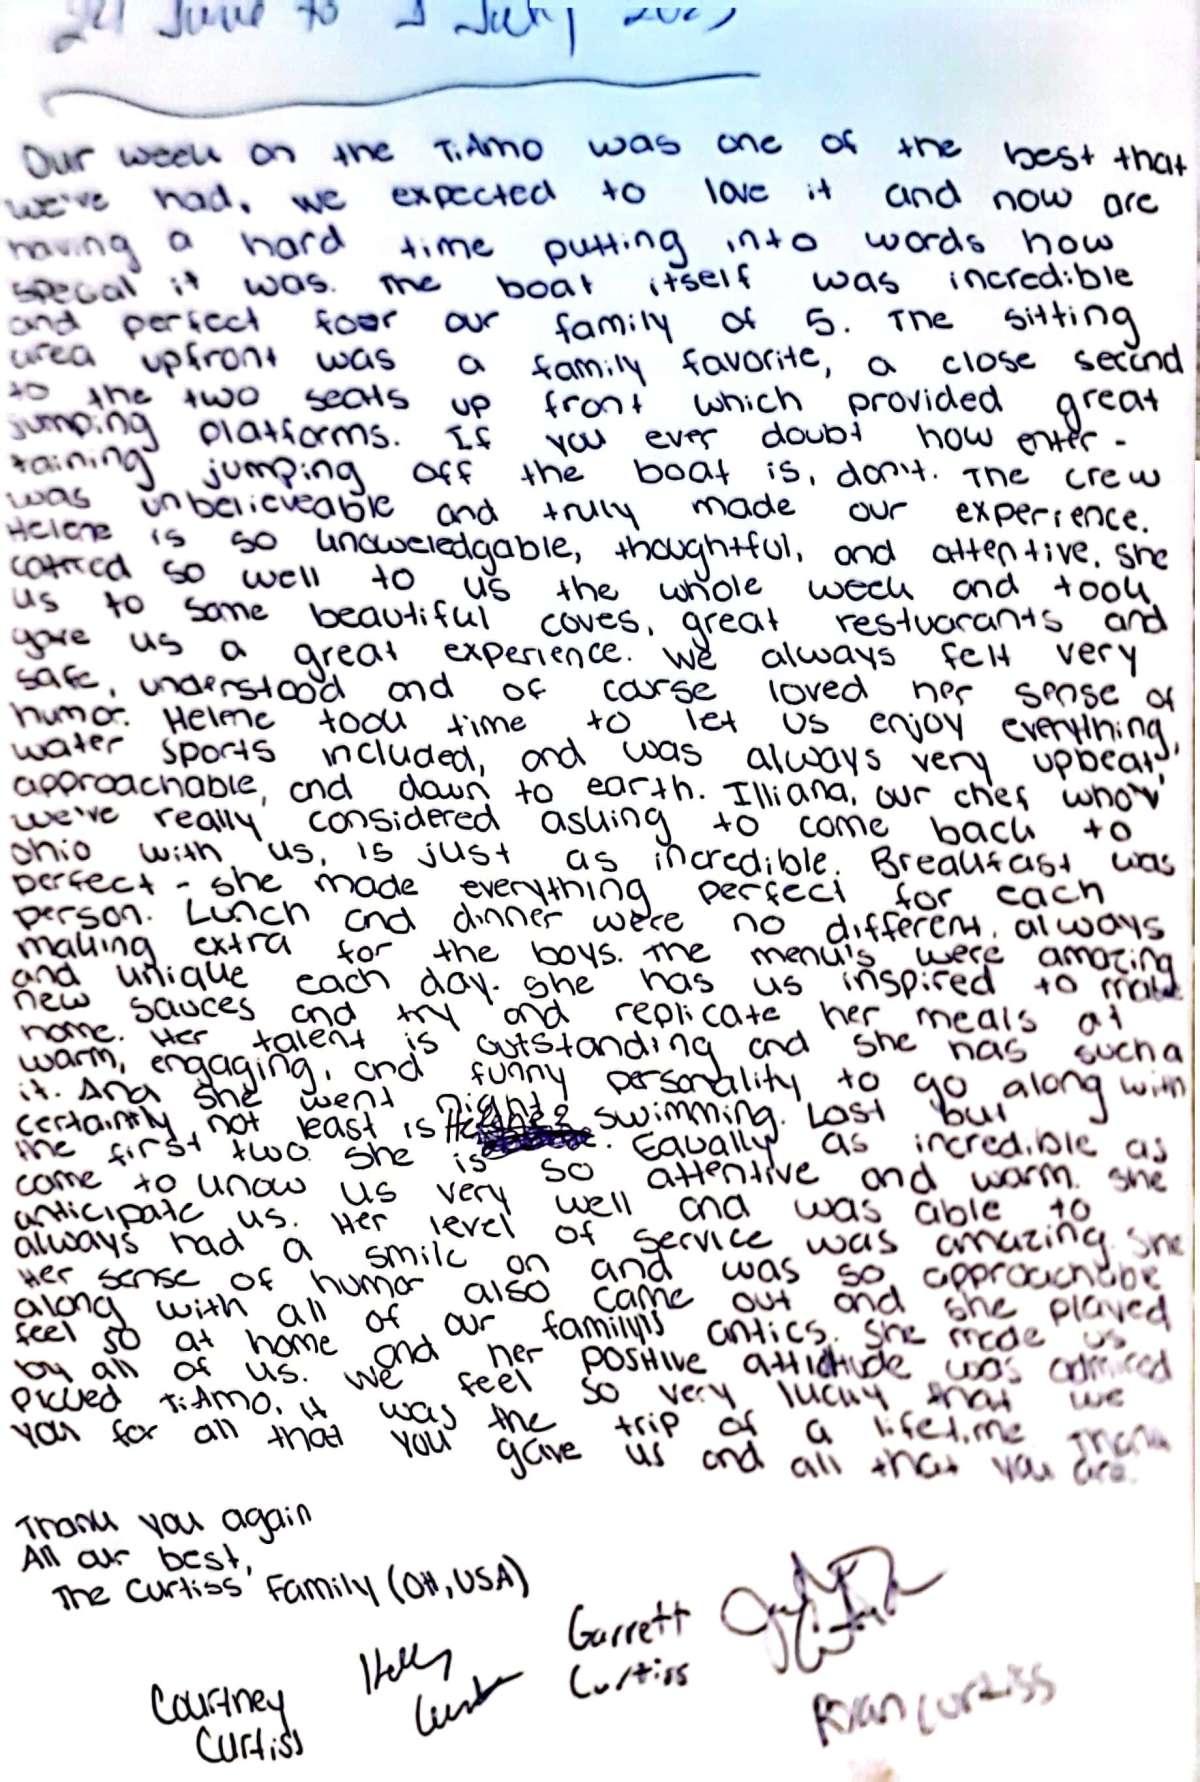 24 June to 1 July 202
Our week on the TiAmo was one of the best that
we've had. We expected to love it and now are
having a hard time putting into words how
special it was. The boat itself was incredible
and perfect foor our family of 5. The sitting
area upfront was a family favorite, a close second
to the two seats up front which provided great
jumping platforms. If you ever doubt how enter-
taining jumping off the boat is, don't. The crew
was unbelieveable and truly made our experience.
Helene is so knoweledgable, thoughtful, and attentive. She
catered so well to us the whole week and took
us to some beautiful coves, great restuarants and
gave us a great experience. We always felt very
safe, understood and of carse loved her sense of
humor. Helene took time to let us enjoy everything,
water sports included, and was always very upbeat,
approachable, and down to earth. Illiana, our chef who
we've really considered asking to come back to
Ohio with us, is just as incredible. Breakfast was
perfect - she made everything perfect for each
person. Lunch and dinner were no different, always
making extra for the boys. The menu's were amazing
and unique each day. She has us inspired to make
new sauces and try and replicate her meals at
home. Her talent is outstanding and she has such a
warm, engaging, and funny personality to go along with
it. And she went night swimming. Last but
certaintly not least is . Equally as incredible as
the first two she is so attentive and warm. She
came to know us very well and was able to
anticipate us. Her level of service was amazing. She
always had a smile on and was so approachabe
Her sense of humor also came out and she played
along with all of our family's antics. She made us
feel so at home and her positive attidtude was admired
by all of us. We feel so very lucky that we
picked TiAmo. It was the trip of a lifetime. Thank
you for all that you gave us and all that you are.
Thank you again
All our best,
The Curtiss' Family (OH, USA)
Courtney Curtiss
Holly
Garrett Curtiss
Ryan Curtiss